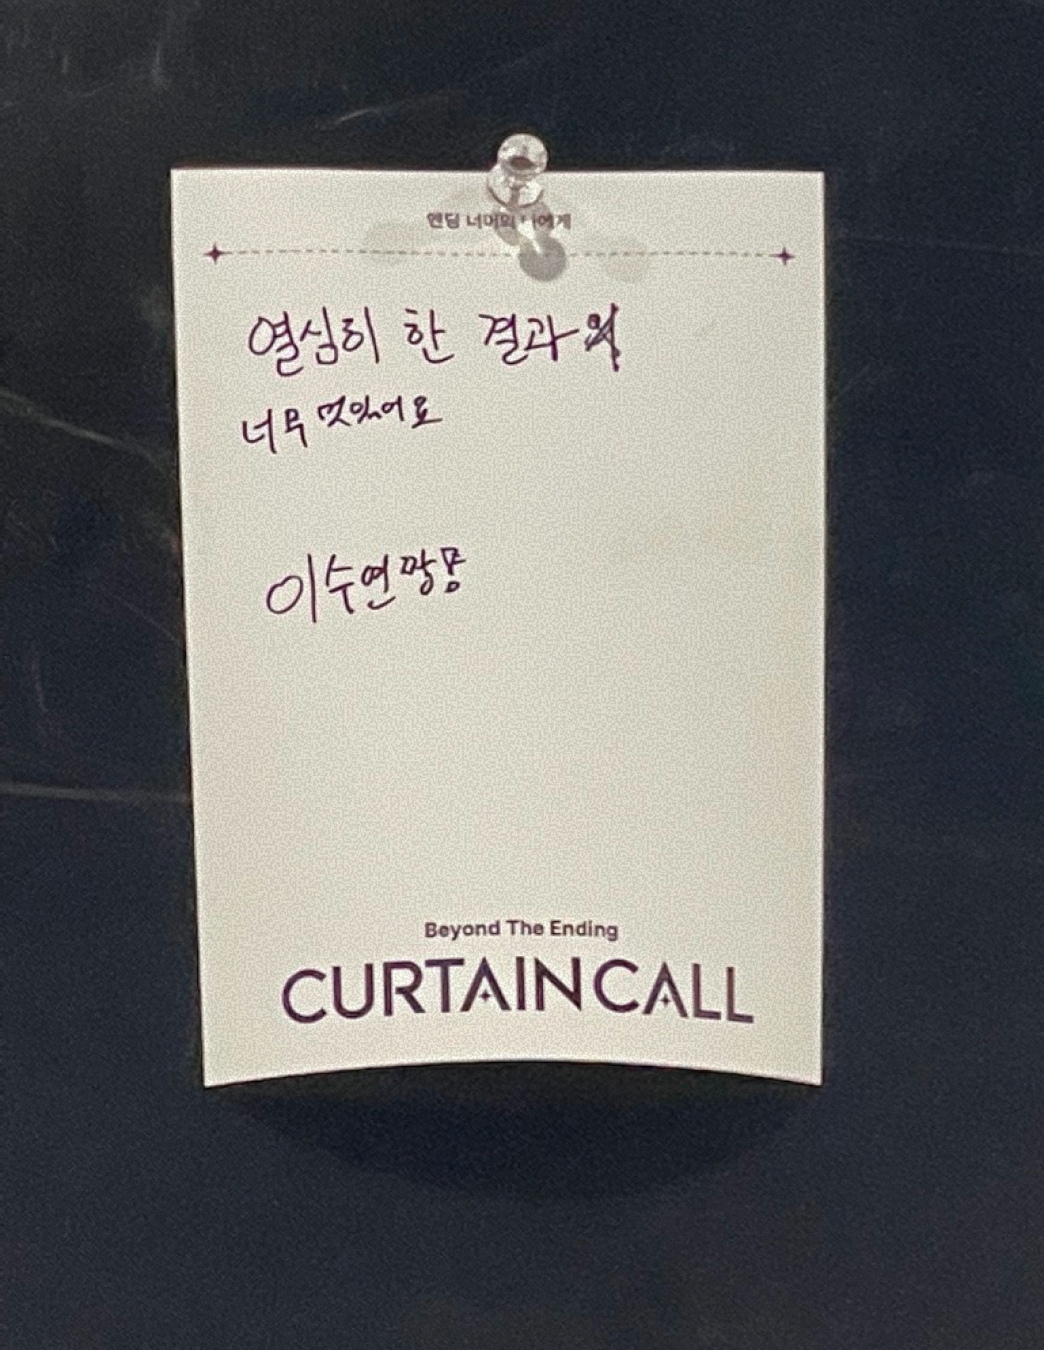 엔딩 너머의 나에게
열심히 한 결과
너무 멋있어요
이수연
Beyond The Ending
CURTAIN CALL